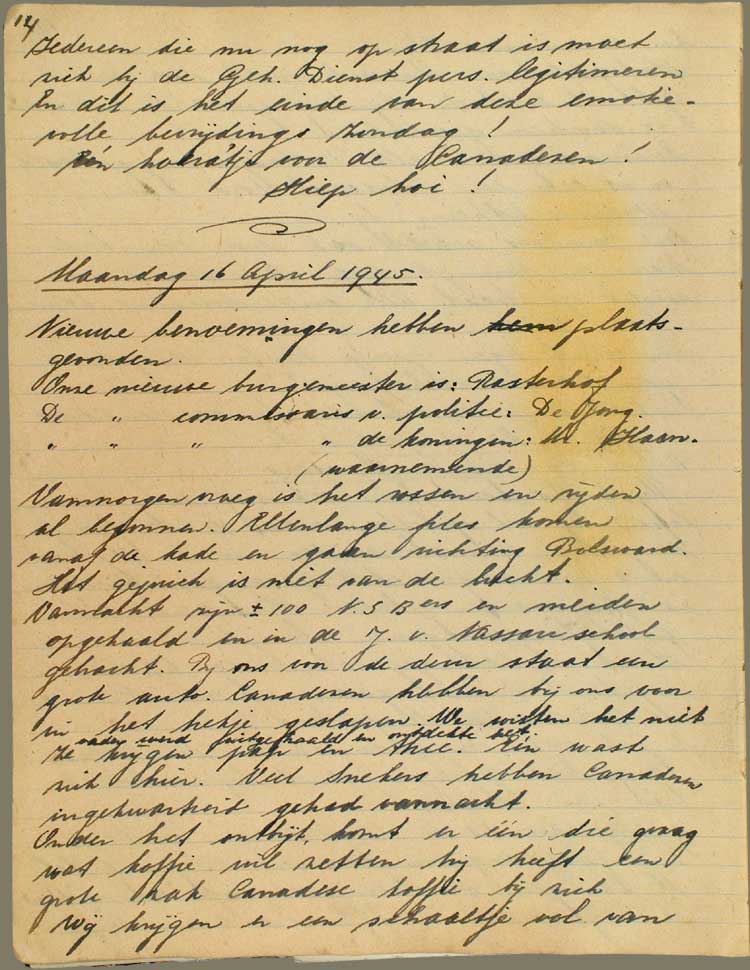 14
Iedereen die nu nog op straat is moet
zich bij de Geh. Dienst pers. legitimeren
En dit is het einde van deze emotie-
volle bevrijdings Zondag!
Eén hoeraatje voor de Canadezen!
Hiep hoi!
Maandag 16 April 1945.
Nieuwe benoemingen hebben plaats-
gevonden.
Onze nieuwe burgemeester is: Rasterhof
De " commissaris v. politie: De Jong.
" " " " de koningin: Mr. Haan.
(waarnemende)
Vanmorgen vroeg is het rossen en rijden
al begonnen. Ellenlange files komen
vanaf de kade en gaan richting Bolsward.
Het gejuich is niet van de lucht.
Vannacht zijn ± 100 N.S.Bers en meiden
opgehaald en in de J. v. Nassau school
gebracht. Bij ons voor de deur staat een
grote auto. Canadezen hebben bij ons voor
in het hekje geslapen. We wisten het niet
vader werd uitgehaald en ontdekte het.
Ze krijgen pap en thee. Eén wast
zich hier. Veel Snekers hebben Canadezen
ingekwartierd gehad vannacht.
Onder het ontbijt, komt er één die graag
wat koffie wil zetten hij heeft een
grote zak Canadese koffie bij zich
Wij krijgen er een schaaltje vol van